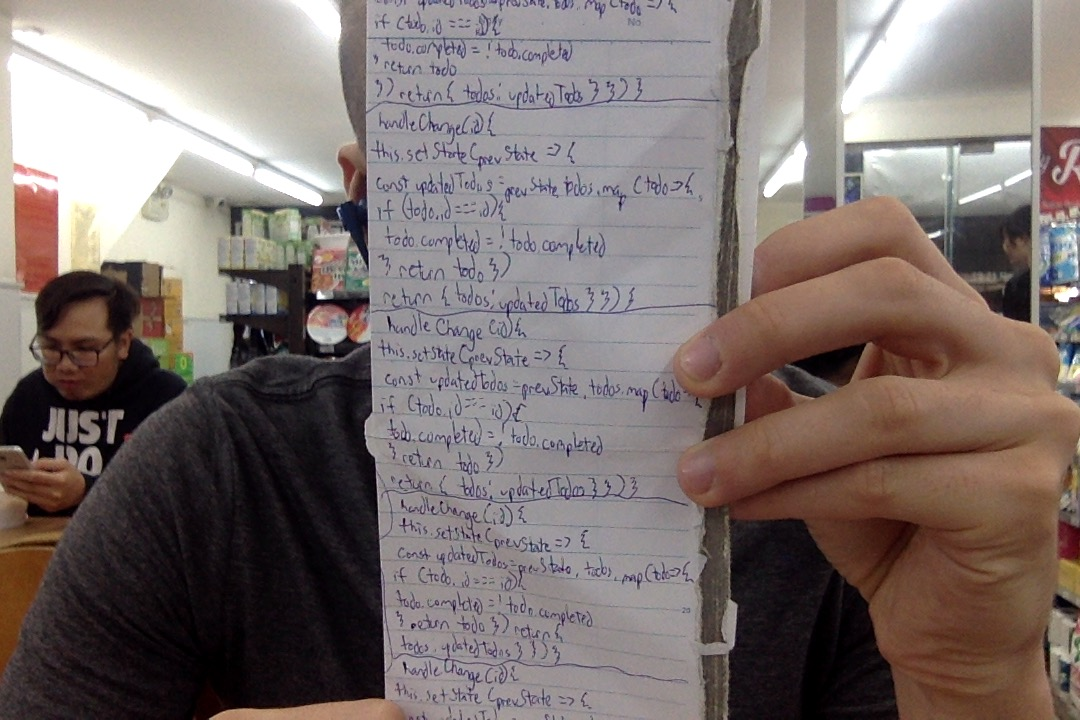 const updatedTodos=prevState.todos.map(todo=>{
No
if (todo.id ===id){
todo.completed = !todo.completed
} return todo
}) return{ todos: updatedTodos } }) }
handleChange(id){
this.setState(prevState => {
const updatedTodos=prevState todos.map (todo=>{
if (todo.id===id){
todo.completed = !todo.completed
} return todo })
return { todos: updatedTodos } }) }
handle Change (id){
this.setState(prevState => {
const updatedTodos=prevState, todos.map(todo= {
if (todo.id===id){
todo.completed = !todo.completed
} return todo })
return { todos: updatedTodos } }) }
handleChange(id) {
this.setState(prevState => {
const updatedTodos=prevStado, todos.map(todo=>{
if (todo.id===id){
20
todo.completed = !todo.completed
} return todo }) return{
todos: updatedTodos } }) }
handle Change(id){
this.setState (prevState => {
JUST
DO
R